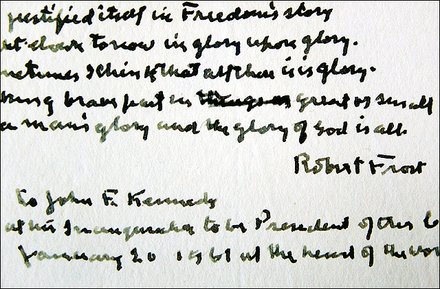 justified itself in Freedom's story
right down to now in glory upon glory.
Sometimes I think that all there is is glory.
being brave part in things great or small
a man's glory and the glory of God is all.
Robert Frost
to John F. Kennedy
at his Inauguration to be President of this
January 20 1961 at the head of the